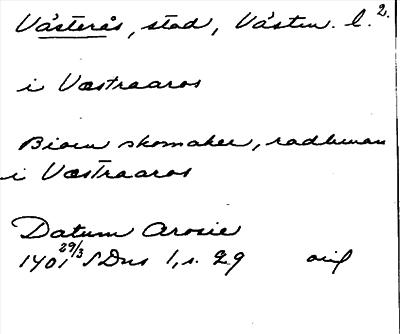 Västerås, stad, Västm. l. 2.
i Væstraaros
Biorn skomaker, radhman
i Væstraaros
Datum Arosie
1401 29/3 SDns 1, s. 29 orig